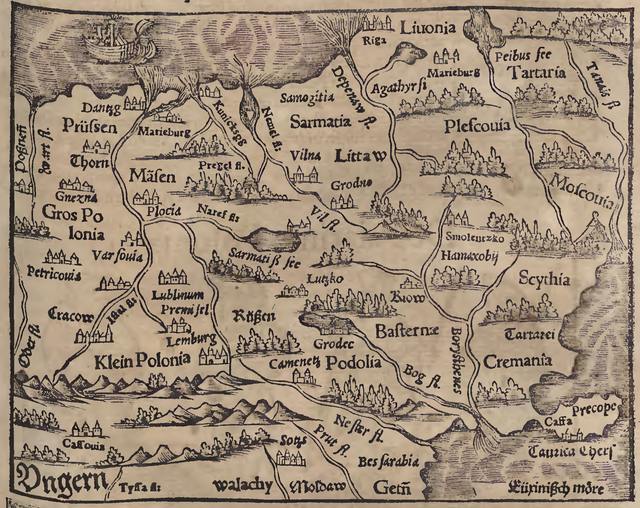 Liuonia
Riga
Peibus see
Marieburg
Tartaria
Tanais fl.
Agathyrsi
Dantzg
Samogitia
Prüssen
Marieburg
Sarmatia
Plescouia
Thorn
Pregel fl.
Vilna
Littaw
Måsen
Gnezna
Grodno
Moscouia
Gros Po
lonia
Plocia
Naref fl:
Vil fl.
Smolentzko
Varsouia
Sarmatiß see
Hamaxobij
Petricouia
Lutzko
Kuow
Scythia
Lublinum
Premisel
Cracow
Istul fl:
Reüßen
Basternæ
Tartarei
Lemburg
Grodec
Borysthenes
Klein Polonia
Camenetz
Podolia
Cremania
Oder fl.
Bog fl.
Precope
Nester fl.
Caffa
Cassouia
Sotis
Prut fl.
Taurica Chers
Bessarabia
Vngern
Tyssa fl:
Walachy
Moldaw
Getæ
Eüxinisch möre